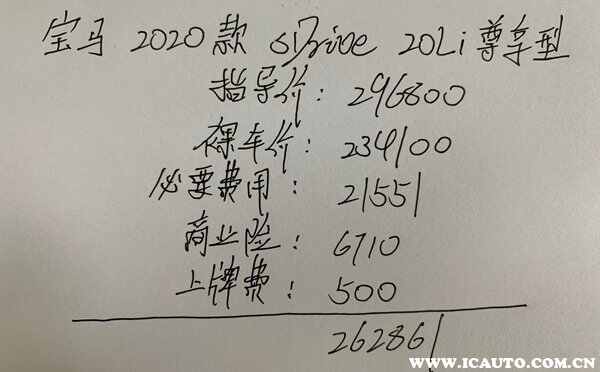 宝马 2020款 sDrive 20Li 尊享型
指导价: 296800
裸车价: 234100
必要费用: 21551
商业险: 6710
上牌费: 500
262861
WWW.ICAUTO.COM.CN